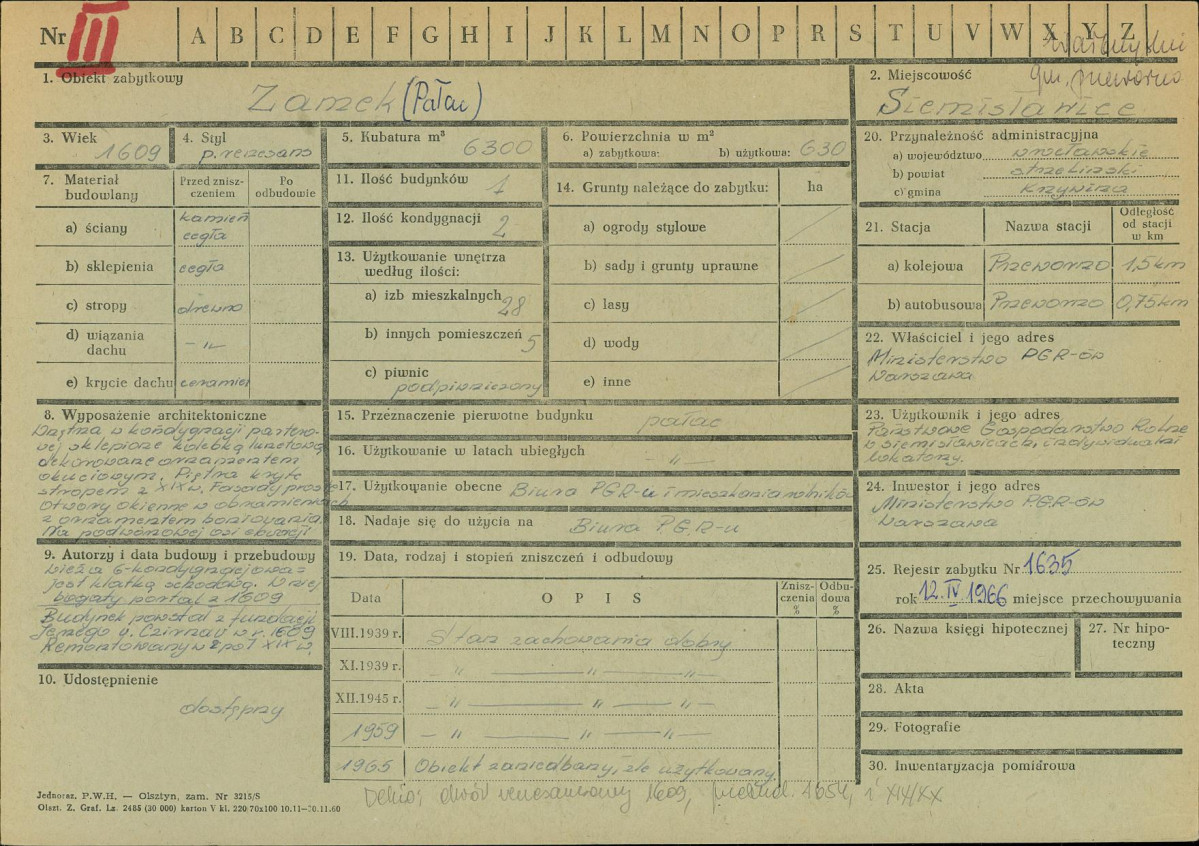 Nr III A B C D E F G H I J K L M N O P R S T U V W X Y Z
gm. Przeworno
1. Obiekt zabytkowy
Zamek (Pałac)
2. Miejscowość
Siemisławice
3. Wiek
1609
4. Styl
p. renesans
5. Kubatura m³
6300
6. Powierzchnia w m²
a) zabytkowa: b) użytkowa: 630
20. Przynależność administracyjna
a) województwo wrocławskie
b) powiat strzeliński
c) gmina Krzywina
7. Materiał budowlany
Przed zniszczeniem
Po odbudowie
a) ściany kamień cegła
b) sklepienia cegła
c) stropy drewno
d) wiązania dachu – " –
e) krycie dachu ceramicz
11. Ilość budynków 1
12. Ilość kondygnacji 2
13. Użytkowanie wnętrza według ilości:
a) izb mieszkalnych 28
b) innych pomieszczeń 5
c) piwnic podpiwniczony
14. Grunty należące do zabytku: ha
a) ogrody stylowe
b) sady i grunty uprawne
c) lasy
d) wody
e) inne
21. Stacja
Nazwa stacji
Odległość od stacji w km
a) kolejowa Przeworno 1,5 km
b) autobusowa Przeworno 0,75 km
22. Właściciel i jego adres
Ministerstwo PGR-ów
Warszawa
8. Wyposażenie architektoniczne
Wnętrza w kondygnacji partero-
wej sklepione kolebką lunetową
dekorowane ornamentem
okuciowym. Piętra kryte
stropem z XIX w. Fasady proste
Otwory okienne w obramieniach
z ornamentem boniowania.
Na podwórzowej osi elewacji
9. Autorzy i data budowy i przebudowy
wieża 6-kondygnacjowa =
jest klatką schodową. W niej
bogaty portal z 1609
Budynek powstał z fundacji
Jerzego v. Czirnau w r. 1609
Remontowany w 2 poł XIX w.
10. Udostępnienie
dostępny
15. Przeznaczenie pierwotne budynku pałac
16. Użytkowanie w latach ubiegłych – " –
17. Użytkowanie obecne Biura PGR-u i mieszkania rolników
18. Nadaje się do użycia na Biura P.G.R-u
19. Data, rodzaj i stopień zniszczeń i odbudowy
Data
OPIS
Zniszczenia %
Odbudowa %
VIII.1939 r. Stan zachowania dobry
XI.1939 r. " — " — "
XII.1945 r. – " — " — " –
1959 – " — " — " –
1965 Obiekt zaniedbany, źle użytkowany.
23. Użytkownik i jego adres
Państwowe Gospodarstwo Rolne
w Siemisławicach, indywidualni
lokatorzy.
24. Inwestor i jego adres
Ministerstwo P.G.R-ów
Warszawa
25. Rejestr zabytku Nr 1635
rok 12.IV 1966 miejsce przechowywania
26. Nazwa księgi hipotecznej
27. Nr hipoteczny
28. Akta
29. Fotografie
30. Inwentaryzacja pomiarowa
Jednoraz. P.W.H. — Olsztyn, zam. Nr 3215/S
Olszt. Z. Graf. Lz. 2485 (30 000) karton V kl. 220/70x100 10.11—30.11.60
Dehio: dwór renesansowy 1609, przebud. 1654, i XIX/XX